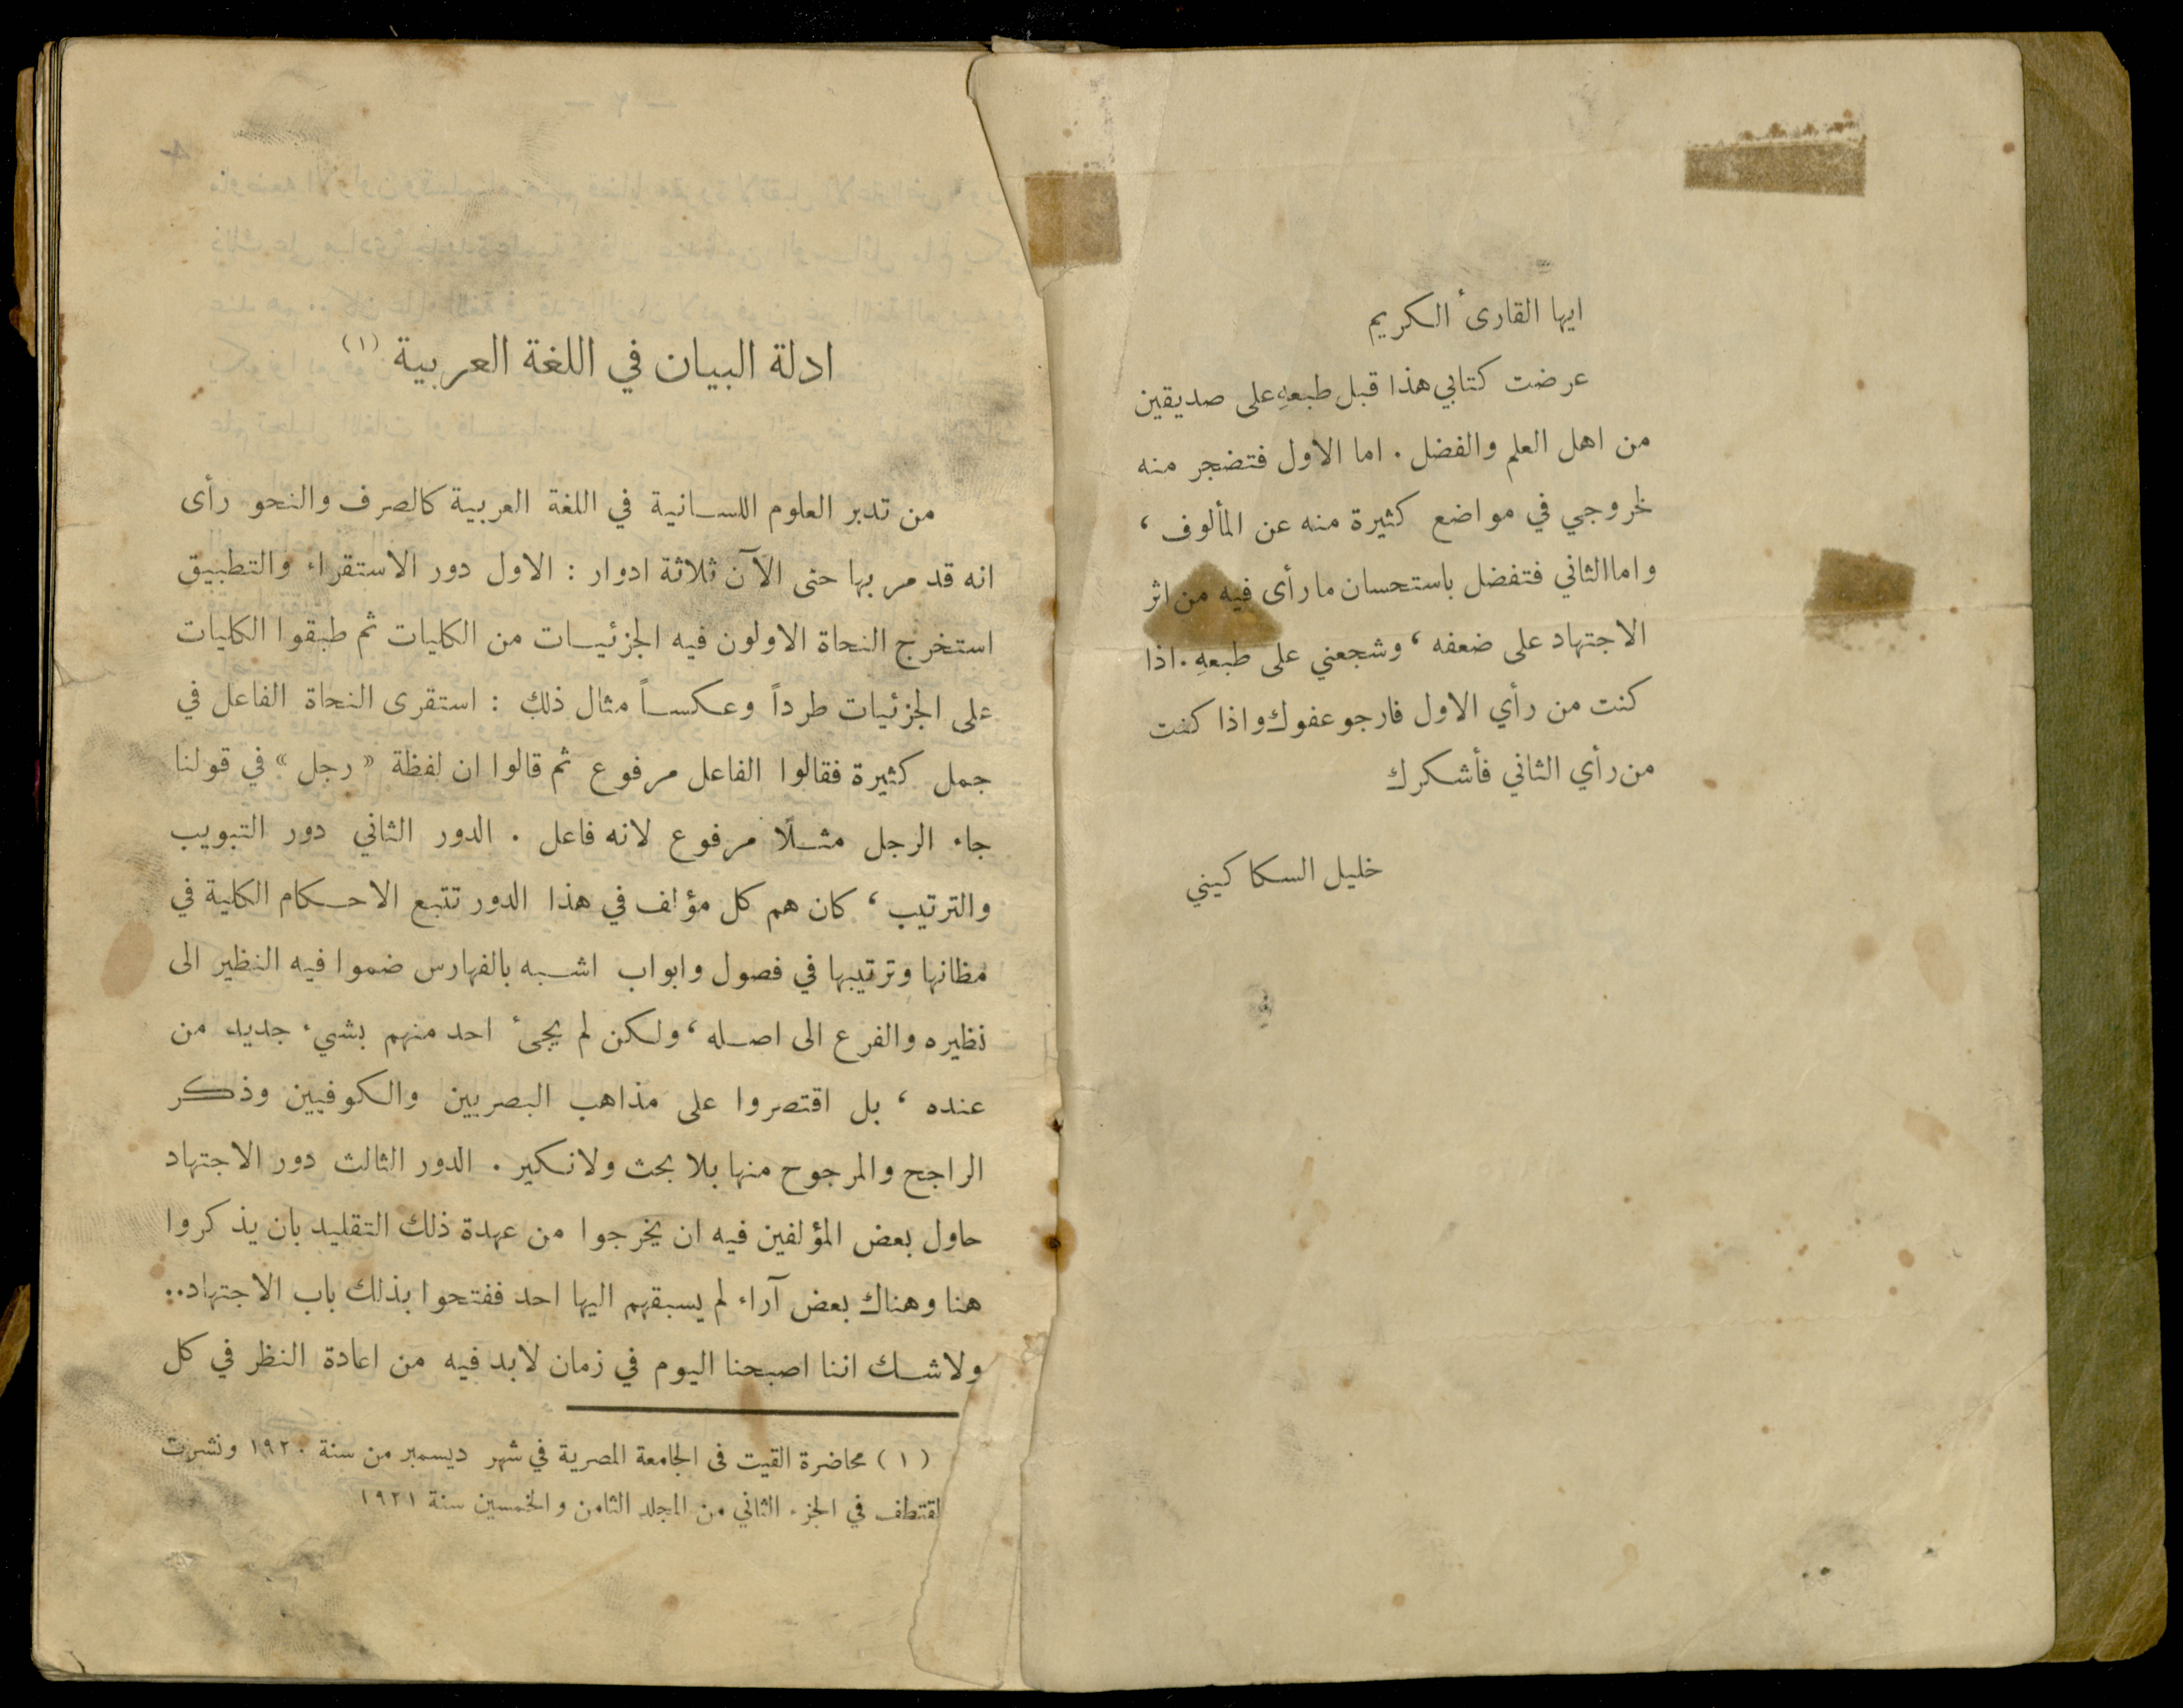 ايها القارئ الكريم
عرضت كتابي هذا قبل طبعهِ على صديقين
من اهل العلم والفضل . اما الاول فتضجر منه
لخروجي في مواضع كثيرة منه عن المألوف ،
واما الثاني فتفضل باستحسان ما رأى فيه من اثر
الاجتهاد على ضعفه ، وشجعني على طبعهِ . اذا
كنت من رأي الاول فارجو عفوك واذا كنت
من رأي الثاني فأشكرك
خليل السكاكيني
ادلة البيان في اللغة العربية (١)
من تدبر العلوم اللسانية في اللغة العربية كالصرف والنحو رأى
انه قد مر بها حتى الآن ثلاثة ادوار : الاول دور الاستقراء والتطبيق
استخرج النحاة الاولون فيه الجزئيات من الكليات ثم طبقوا الكليات
على الجزئيات طرداً وعكساً مثال ذلك : استقرى النحاة الفاعل في
جمل كثيرة فقالوا الفاعل مرفوع ثم قالوا ان لفظة « رجل » في قولنا
جاء الرجل مثلًا مرفوع لانه فاعل . الدور الثاني دور التبويب
والترتيب ، كان هم كل مؤلف في هذا الدور تتبع الاحكام الكلية في
مظانها وترتيبها في فصول وابواب اشبه بالفهارس ضموا فيه النظير الى
نظيره والفرع الى اصله ، ولكن لم يجئ احد منهم بشيء جديد من
عنده ، بل اقتصروا على مذاهب البصريين والكوفيين وذكر
الراجح والمرجوح منها بلا بحث ولا نكير . الدور الثالث دور الاجتهاد
حاول بعض المؤلفين فيه ان يخرجوا من عهدة ذلك التقليد بان يذكروا
هنا وهناك بعض آراء لم يسبقهم اليها احد ففتحوا بذلك باب الاجتهاد..
ولا شك اننا اصبحنا اليوم في زمان لا بد فيه من اعادة النظر في كل
( ١ ) محاضرة القيت فى الجامعة المصرية في شهر ديسمبر من سنة ١٩٢٠ ونشرت
لمقتطف في الجزء الثاني من المجلد الثامن والخمسين سنة ١٩٢١